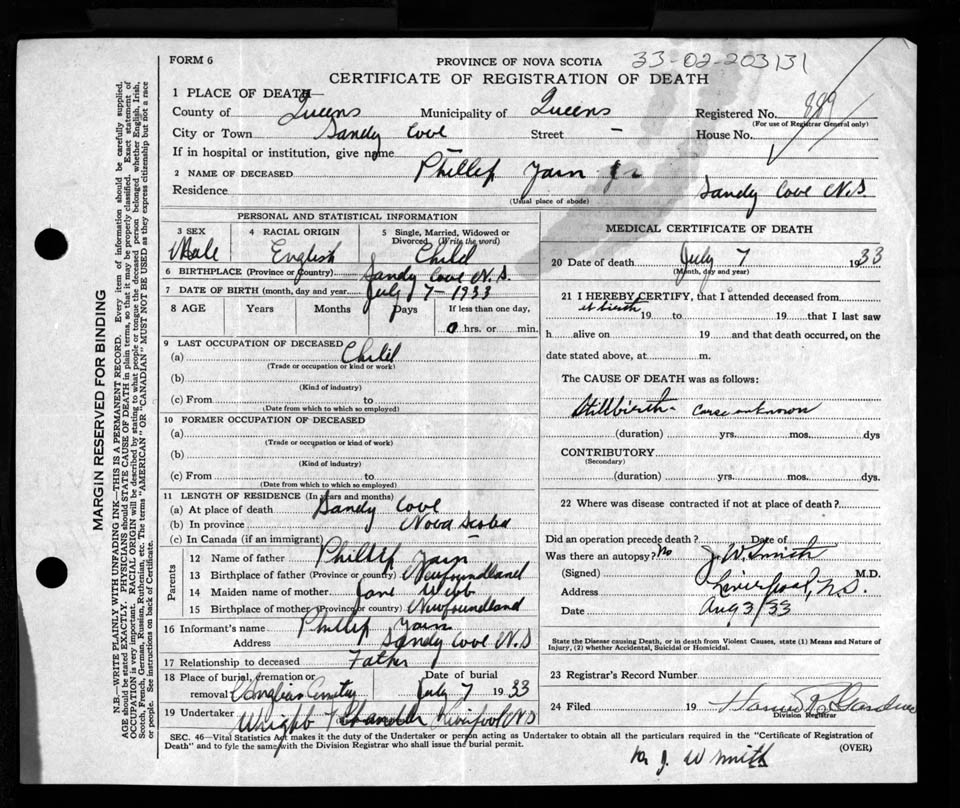 FORM 6
PROVINCE OF NOVA SCOTIA 33-02-203131
CERTIFICATE OF REGISTRATION OF DEATH
1 PLACE OF DEATH—
County of Queens Municipality of Queens Registered No. 889
(For use of Registrar General only)
City or Town Sandy Cove Street – House No.
If in hospital or institution, give name –
2 NAME OF DECEASED Phillip Yarn Jr
Residence Sandy Cove N.S
(Usual place of abode)
PERSONAL AND STATISTICAL INFORMATION
3 SEX Male
4 RACIAL ORIGIN English
5 Single, Married, Widowed or Divorced (Write the word) Child
6 BIRTHPLACE (Province or Country) Sandy Cove N.S.
7 DATE OF BIRTH (month, day and year) July 7-1933
8 AGE Years Months Days If less than one day,
0 hrs. or min.
9 LAST OCCUPATION OF DECEASED
(a) Child
(Trade or occupation or kind or work)
(b)
(Kind of industry)
(c) From to
(Date from which to which so employed)
10 FORMER OCCUPATION OF DECEASED
(a)
(Trade or occupation or kind of work)
(b)
(Kind of industry)
(c) From to
(Date from which to which so employed)
11 LENGTH OF RESIDENCE (In years and months)
(a) At place of death Sandy Cove
(b) In province Nova Scotia
(c) In Canada (if an immigrant) –
Parents
12 Name of father Phillip Yarn
13 Birthplace of father (Province or country) Newfoundland
14 Maiden name of mother Jane Webb
15 Birthplace of mother (Province or country) Newfoundland
16 Informant's name Phillip Yarn
Address Sandy Cove N.S
17 Relationship to deceased Father
18 Place of burial, cremation or Date of burial
removal Anglican Cemetery July 7 1933
19 Undertaker Chandler Liverpool N.S
MEDICAL CERTIFICATE OF DEATH
20 Date of death July 7 1933
(Month, day and year)
21 I HEREBY CERTIFY, that I attended deceased from
at birth 19 to 19 that I last saw
h alive on 19 and that death occurred, on the
date stated above, at m.
The CAUSE OF DEATH was as follows:
Stillbirth - cause unknown
(duration) yrs. mos. dys
CONTRIBUTORY
(Secondary)
(duration) yrs. mos. dys.
22 Where was disease contracted if not at place of death?
Did an operation precede death? Date of
Was there an autopsy? No
(Signed) J. W. Smith M.D.
Address Liverpool, N.S.
Date Aug 3/33
State the Disease causing Death, or in death from Violent Causes, state (1) Means and Nature of
Injury, (2) whether Accidental, Suicidal or Homicidal.
23 Registrar's Record Number
24 Filed 19
Division Registrar
SEC. 46—Vital Statistics Act makes it the duty of the Undertaker or person acting as Undertaker to obtain all the particulars required in the "Certificate of Registration of
Death" and to fyle the same with the Division Registrar who shall issue the burial permit.
(OVER)
J W Smith
MARGIN RESERVED FOR BINDING
N.B.—WRITE PLAINLY WITH UNFADING INK—THIS IS A PERMANENT RECORD. Every item of information should be carefully supplied.
AGE should be stated EXACTLY. PHYSICIANS should STATE CAUSE OF DEATH in plain terms, so that it may be properly classified. Exact statement of
OCCUPATION is very important. RACIAL ORIGIN will be described by stating to what people or tongue the deceased person belonged whether English, Irish,
Scotch, French, German, Russian, Ruthenian, etc. The terms "AMERICAN" OR "CANADIAN" MUST NOT BE USED as they express citizenship but not a race
or people. See instructions on back of Certificate.